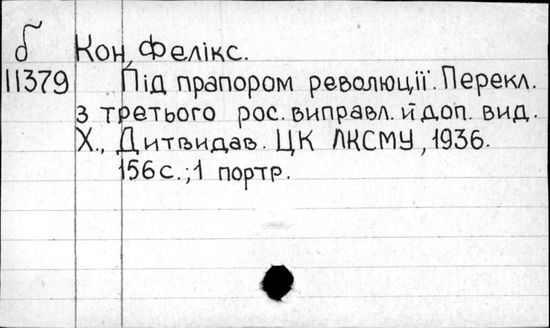 б Кон, Фелікс.
11379 Під прапором революції. Перекл.
з третього рос. виправл. й доп. вид.
Х., Дитвидав. ЦК ЛКСМУ, 1936.
156с.; 1 портр.